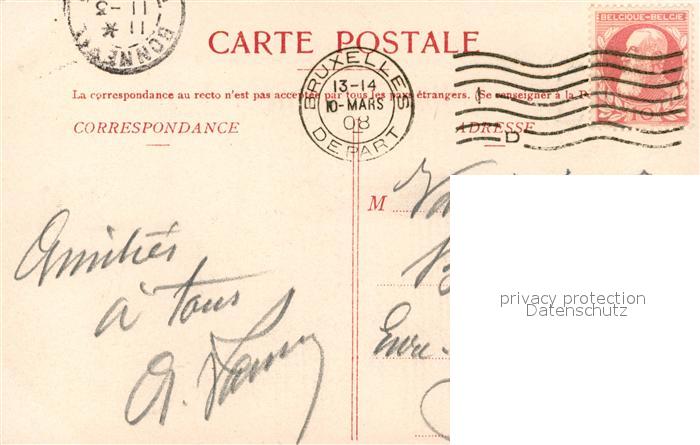 CARTE POSTALE
BELGIQUE-BELGIE
BRUXELLES
13-14
10-MARS
08
DEPART
La correspondance au recto n'est pas acceptée par tous les pays étrangers. (Se renseigner à la
CORRESPONDANCE
ADRESSE
D
M
Amitiés
à tous
privacy protection
Datenschutz
Eure